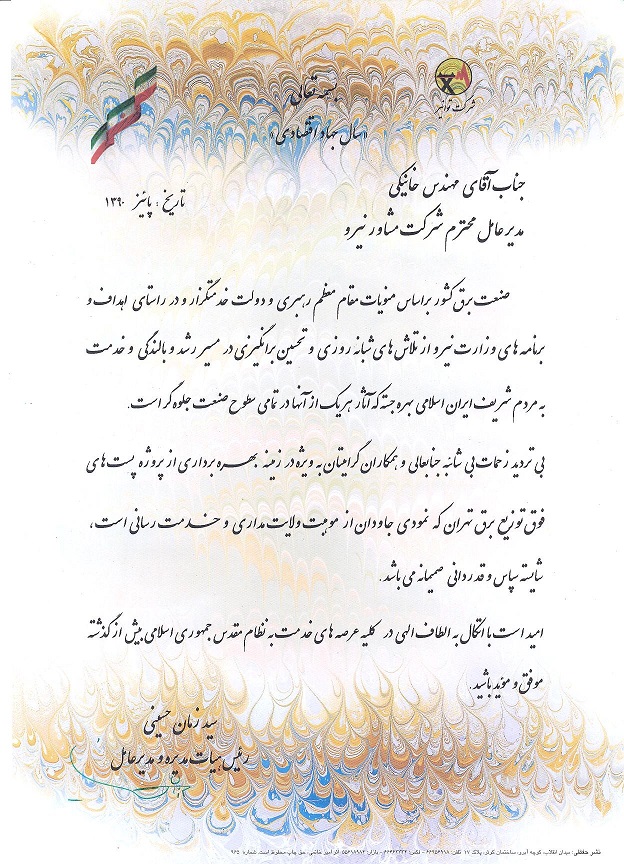 بسمه تعالی
«سال جهاد اقتصادی»
شرکت توانیر
جناب آقای مهندس خانیکی
تاریخ : پائیز ۱۳۹۰
مدیر عامل محترم شرکت مشاور نیرو
صنعت برق کشور براساس منویات مقام معظم رهبری و دولت خدمتگزار و در راستای اهداف و
برنامه های وزارت نیرو از تلاش های شبانه روزی و تحسین برانگیزی در مسیر رشد و بالندگی و خدمت
به مردم شریف ایران اسلامی بهره جسته که آثار هر یک از آنها در تمامی سطوح صنعت جلوه گر است.
بی تردید زحمات بی شائبه جنابعالی و همکاران گرامیتان به ویژه در زمینه بهره برداری از پروژه پست های
فوق توزیع برق تهران که نمودی جاودان از موهبت ولایت مداری و خدمت رسانی است،
شایسته سپاس و قدردانی صمیمانه می باشد.
امید است با اتکال به الطاف الهی در کلیه عرصه های خدمت به نظام مقدس جمهوری اسلامی بیش از گذشته
موفق و مؤید باشید.
سید زمان حسینی
رئیس هیات مدیره و مدیر عامل